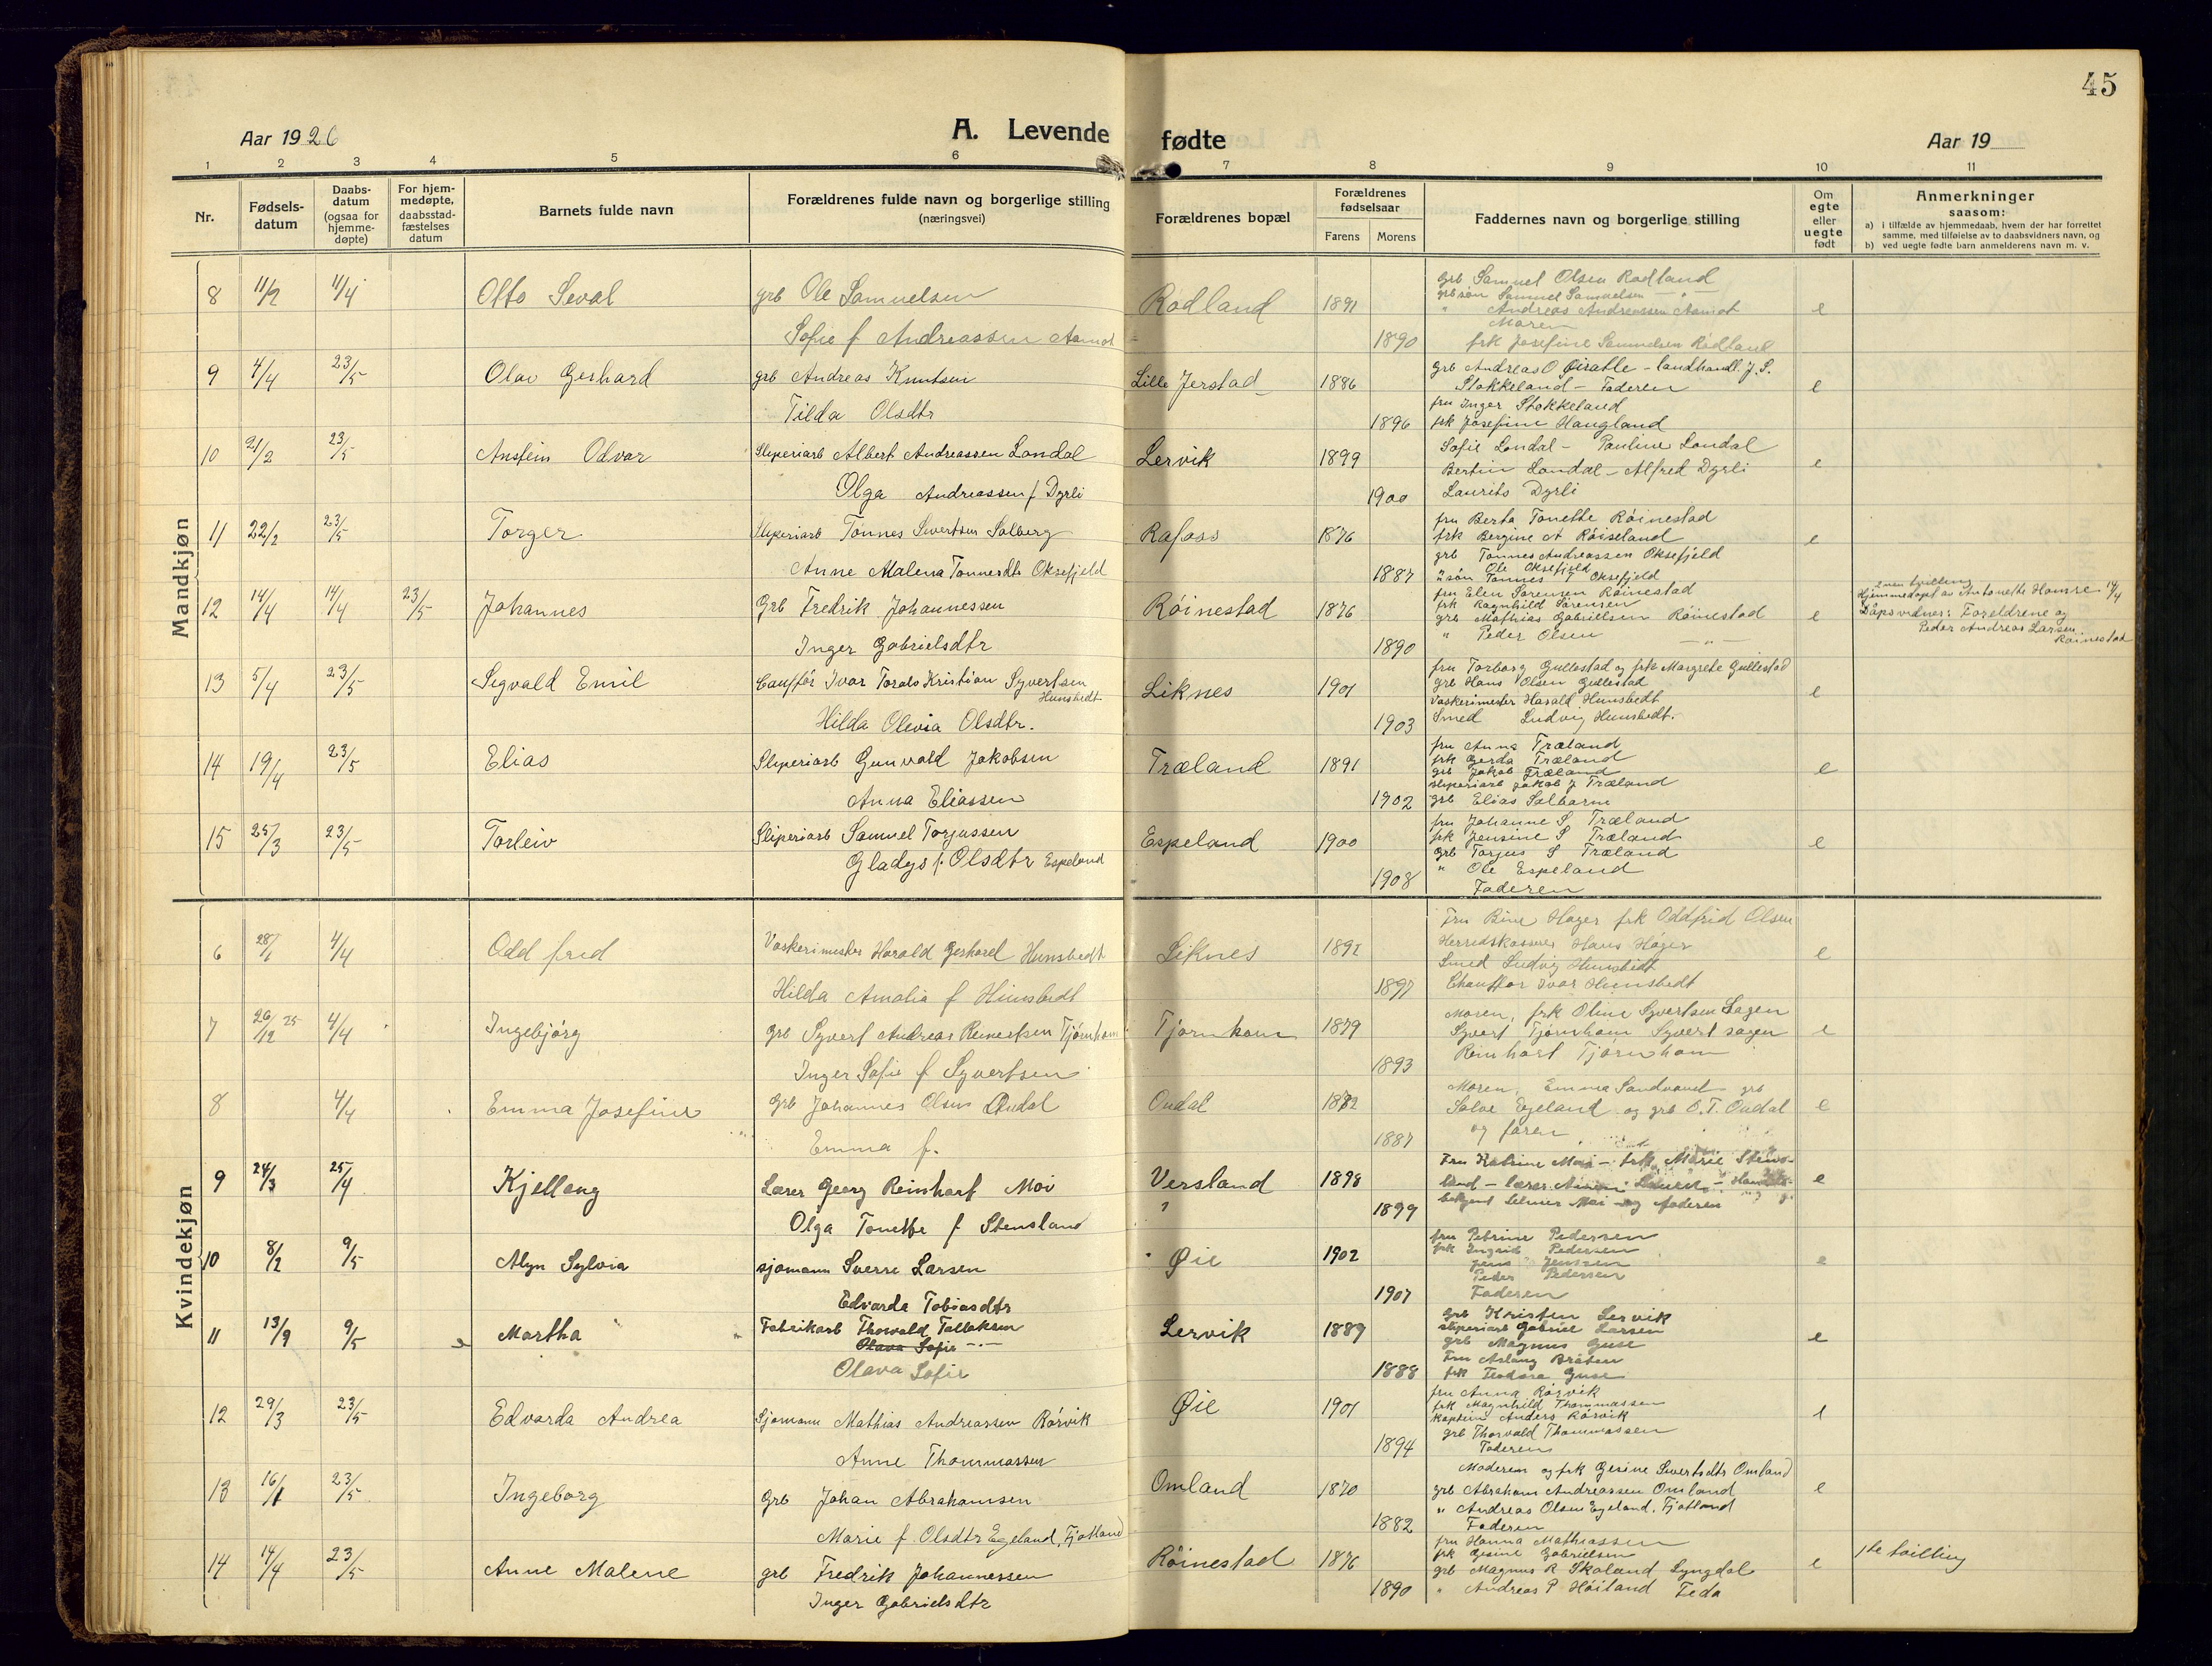 45
Aar 1926
A. Levende fødte
Aar 19
1 2 3 4 5 6 7 8 9 10 11
Nr.
Fødsels-
datum
Daabs-
datum
(ogsaa for
hjemme-
døpte)
For hjem-
medøpte,
daabsstad-
fæstelses
datum
Barnets fulde navn
Forældrenes fulde navn og borgerlige stilling
(næringsvei)
Forældrenes bopæl
Forældrenes
fødselsaar
Farens Morens
Faddernes navn og borgerlige stilling
Om
egte
eller
uegte
født
Anmerkninger
saasom:
a) i tilfælde av hjemmedaab, hvem der har forrettet
samme, med tilføielse av to daabsvidners navn, og
b) ved uegte fødte barn anmelderens navn m. v.
Mandkjøn
8 11/2 11/4 Otto Seval grb Ole Samuelsen Rødland 1891 e
Sofie f Andreassen Aamot 1890
grb Samuel Olsen Rødland
grb søn Samuel Samuelsen
" Andreas Andreassen Aamot
Moren
frk Josefine Samuelsen Rødland
9 4/4 23/5 Olav Gerhard grb Andreas Knutsen Lille Jerstad 1886 e
Tilda Olsdtr 1896
grb Andreas O Øisatle - landhandl. J. S.
Stokkeland - Faderen
fru Inger Stokkeland
frk Josefine Haugland
10 21/2 23/5 Anstein Odvar Sliperiarb Albert Andreassen Londal Lervik 1899 e
Olga Andreassen f Dyrli 1900
Sofie Londal - Pauline Londal
Bertin Londal - Alfred Dyrli
Laurits Dyrli
11 22/2 23/5 Torger Sliperiarb Tønnes Sivertsen Solberg Rafoss 1876 e
Anne Malena Tønnesdtr Oksefjeld 1887
fru Berta Tonette Røinestad
frk Bergine A Røiseland
grb Tønnes Andreassen Oksefjeld
Ole Oksefjeld
Tønnes T Oksefjeld
12 14/4 14/4 23/5 Johannes Grb Fredrik Johannessen Røinestad 1876 e
Inger Gabrielsdtr 1890
fru Elen Sørensen Røinestad
frk Ragnhild Sørensen
grb Mathias Gabrielsen Røinestad
" Peder Olsen - " -
2nen tvilling
Hjemmedøpt av Antonette Homre 14/4
Dåpsvidner: Foreldrene og
Peder Andreas Larsen
Røinestad
13 5/4 23/5 Segvald Emil Cauffør Ivar Torals Kristian Syvertsen Liknes 1901 e
Hunsbedt
Hilda Olevia Olsdtr. 1903
fru Torborg Gullestad og frk Margrete Gullestad
grb Hans Olsen Gullestad
Vaskerimester Harald Hunsbedt
Smed Ludvig Hunsbedt.
14 19/4 23/5 Elias Sliperiarb Gunvald Jakobsen Træland 1891 e
Anna Eliassen 1902
fru Anna Træland
frk Gerda Træland
grb Jakob Træland
sliperiarb Jakob J Træland
grb Elias Salbarm
15 25/3 23/5 Torleiv Sliperiarb Samuel Torjussen Espeland 1900 e
Gladys f. Olsdtr Espeland 1908
fru Johanne S. Træland
frk Jensine S Træland
grb Torjus S Træland
" Ole Espeland
Faderen
Kvindekjøn
6 28/1 4/4 Odd fred Vaskerimester Harald Gerhard Hunsbedt Liknes 1892 e
Hilda Amalia f Hunsbedt 1897
Fru Bine Høger frk Oddfrid Olsen
Herredskasserer Hans Høger
Smed Ludvig Hunsbedt
Chauffør Ivar Hunsbedt
7 26/12 25 4/4 Ingebjørg Grb Syvert Andreas Reinertsen Tjørnhom Tjørnhom 1879 e
Inger Sofie f Syvertsen 1893
Moren, frk Oline Syvertsen Sagen
Syvert Tjørnhom Syvert Sagen
Reinhart Tjørnhom
8 4/4 Emma Josefine Grb Johannes Olsen Oudal Oudal 1882 e
Emma f. 1887
Moren, Emma Sandvand grb
Salve Egeland og grb O. T. Oudal
og faren
9 24/3 25/4 Kjellaug Lærer Georg Reinhart Moi Versland 1898 e
Olga Tonette f Stensland 1899
Fru Katrine Moi - frk Marie Stens-
land - lærer
betjent Selmer Moi og faderen
10 8/2 9/5 Alyn Sylvia sjømann Sverre Larsen Øie 1902 e
Edvarda Tobiasdtr 1907
fru Petrine Pedersen
frk Ingrid Pedersen
Jens Jenssen
Peder Pedersen
Faderen
11 13/9 9/5 Martha Fabrikarb Thorvald Tallaksen Lervik 1889 e
Olava Sofie - " -
Olava Sofie 1888
grb Kristen Lervik
sliperiarb Gabriel Larsen
grb Magnus Guse
Fru Aslaug Bråten
frk Teodora Guse
12 29/3 23/5 Edvarda Andrea Sjømann Mathias Andreassen Rørvik Øie 1901 e
Anne Thommassen 1894
fru Anna Rørvik
frk Magnhild Thommassen
Kaptein Anders Rørvik
grb Thorvald Thommassen
Faderen
13 16/1 23/5 Ingeborg Grb Johan Abrahamsen Omland 1870 e
Marie f Olsdtr Egeland, Fjotland 1882
Moderen og frk Gesine Sivertsdtr Omland
grb Abraham Andreassen Omland
" Andreas Olsen Egeland, Fjotland
Faderen
14 14/4 23/5 Anne Malene grb Fredrik Johannessen Røinestad 1876 e 1ste tvilling
Inger Gabrielsdtr 1890
fru Hanna Mathiassen
frk Gesine Gabrielsen
grb Magnus R Skoland Lyngdal
" Andreas P Høiland Feda